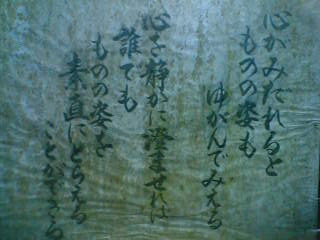 心がみだれると
ものの姿も
ゆがんでみえる
心を静かに澄ませれば
誰でも
ものの姿を
素直にとらえる
ことができる